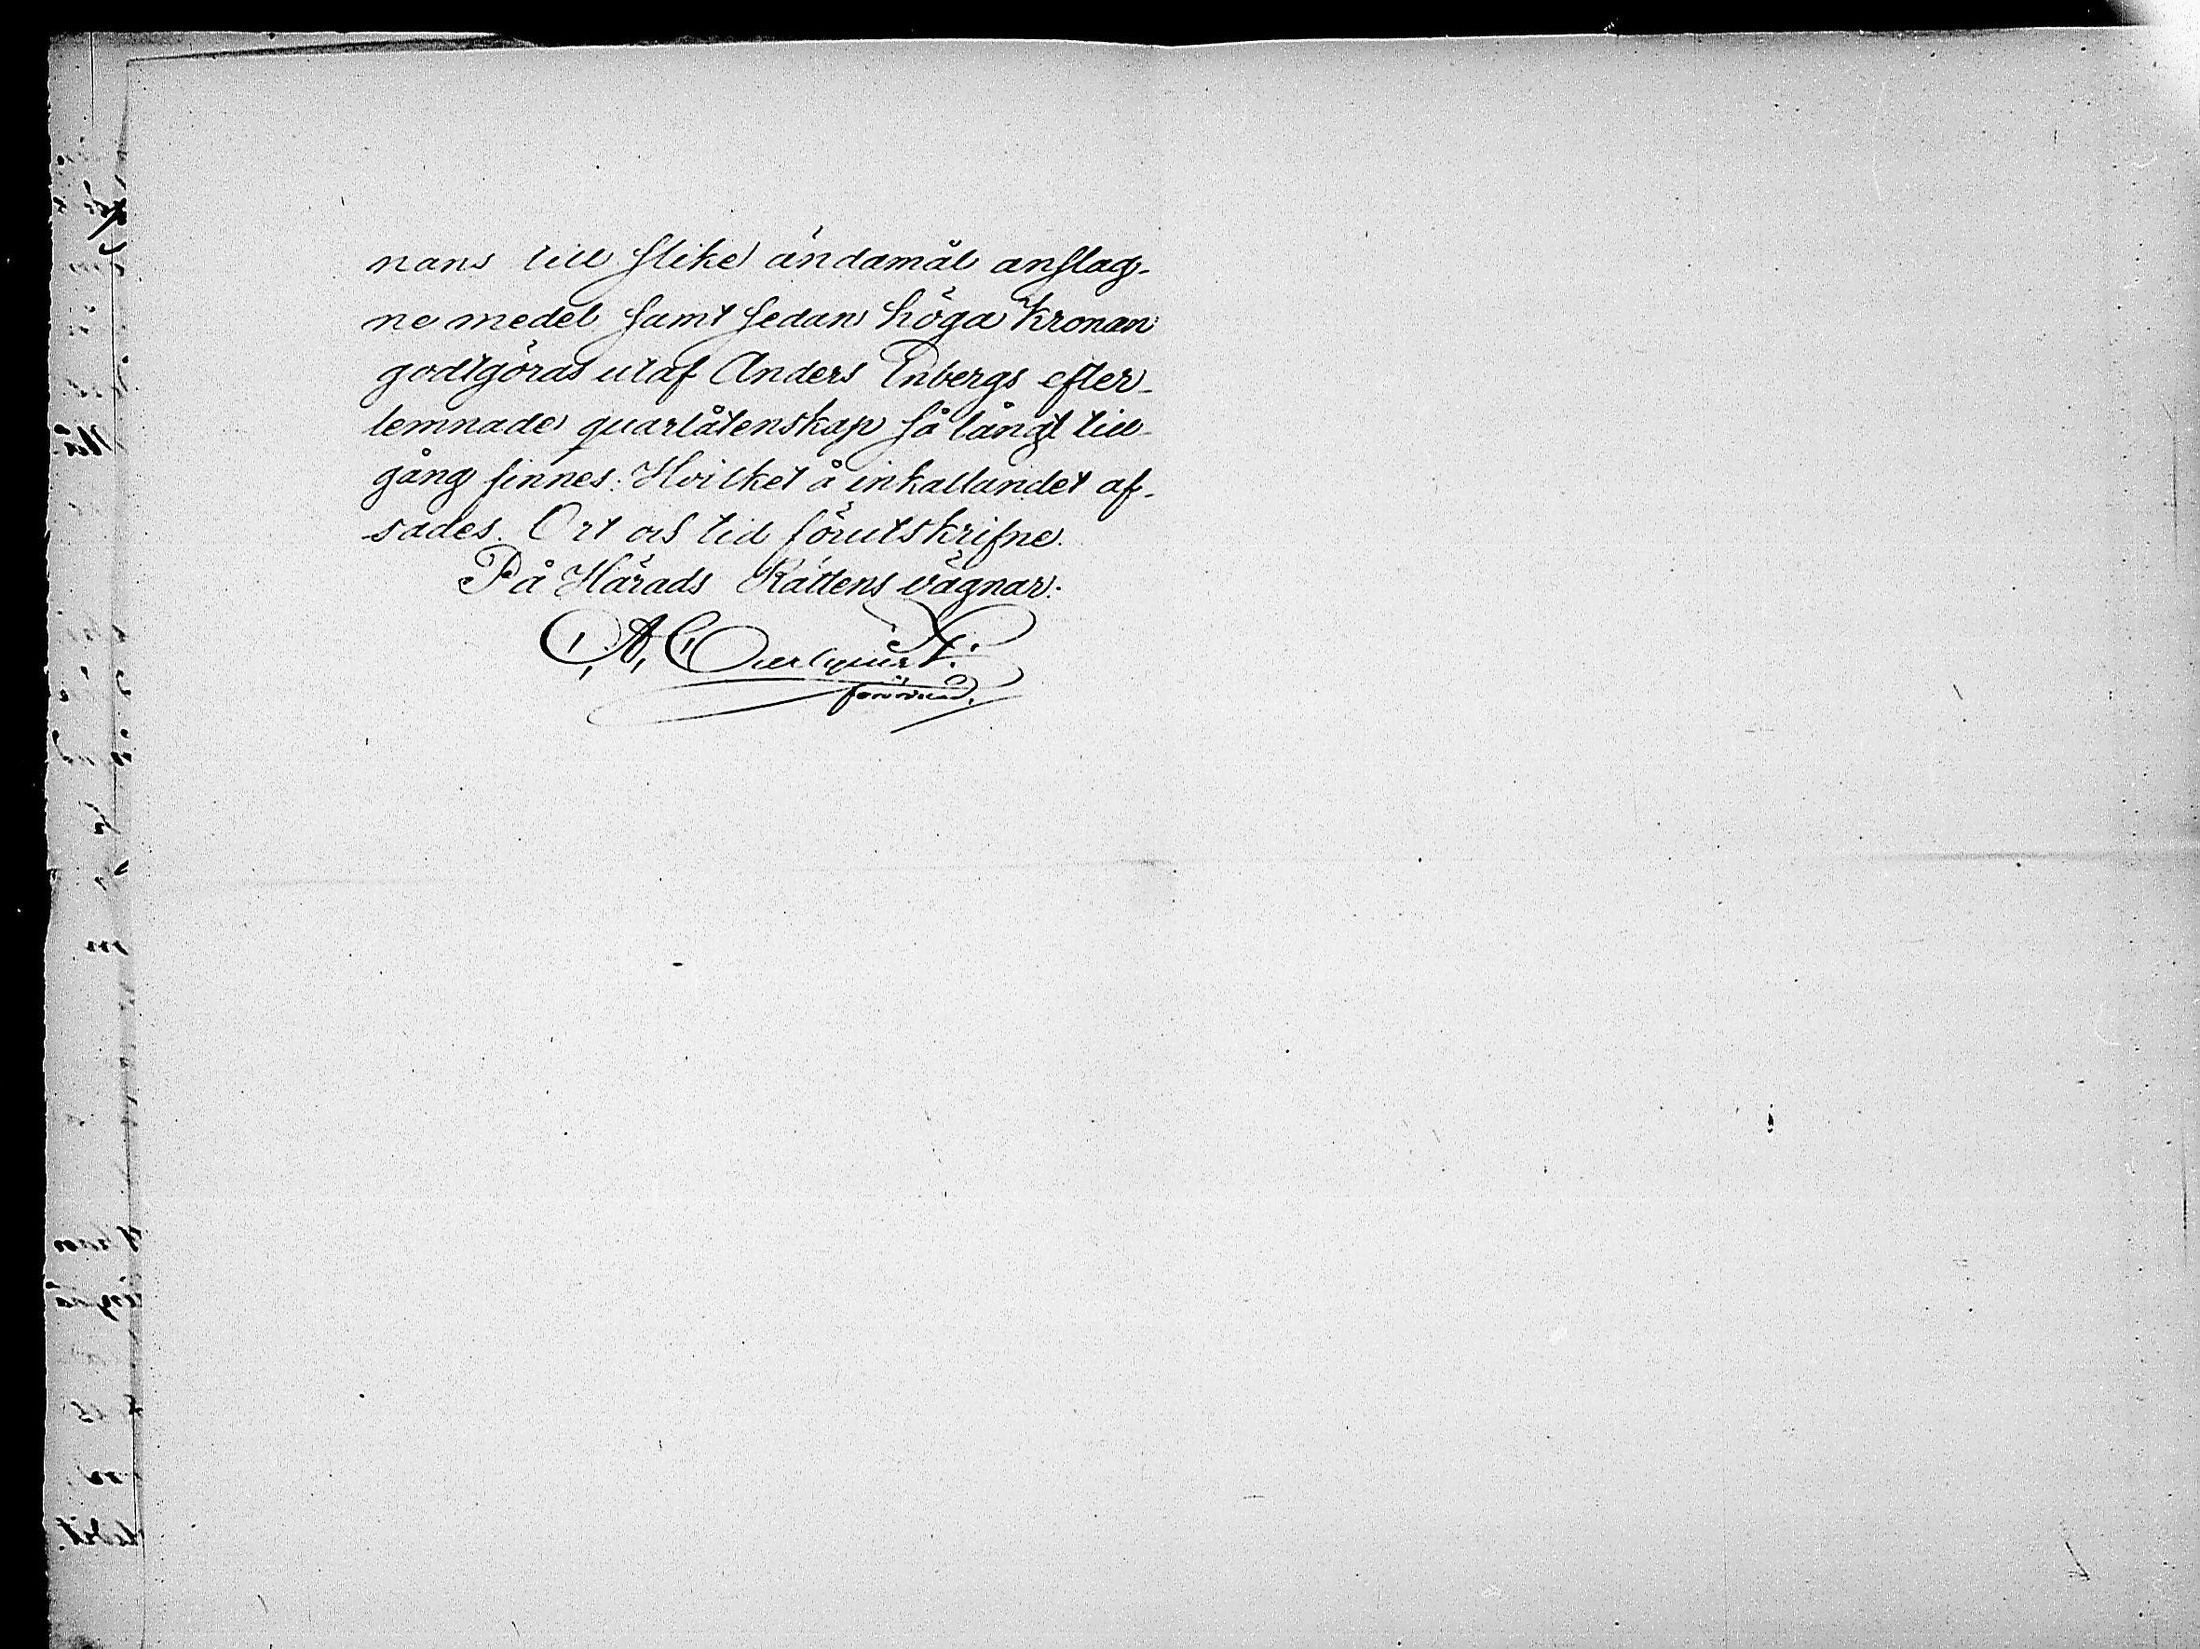 nans till slike ändamål anslag-
ne medel samt sedan höga Kronan
godtgöras utaf Anders Enbergs efter-
lemnade quarlåtenskap så långt till-
gång finnes: Hvilket å inkallandet af-
sades. Ort och tid förutskrifne.
På Härads Rättens vägnar: